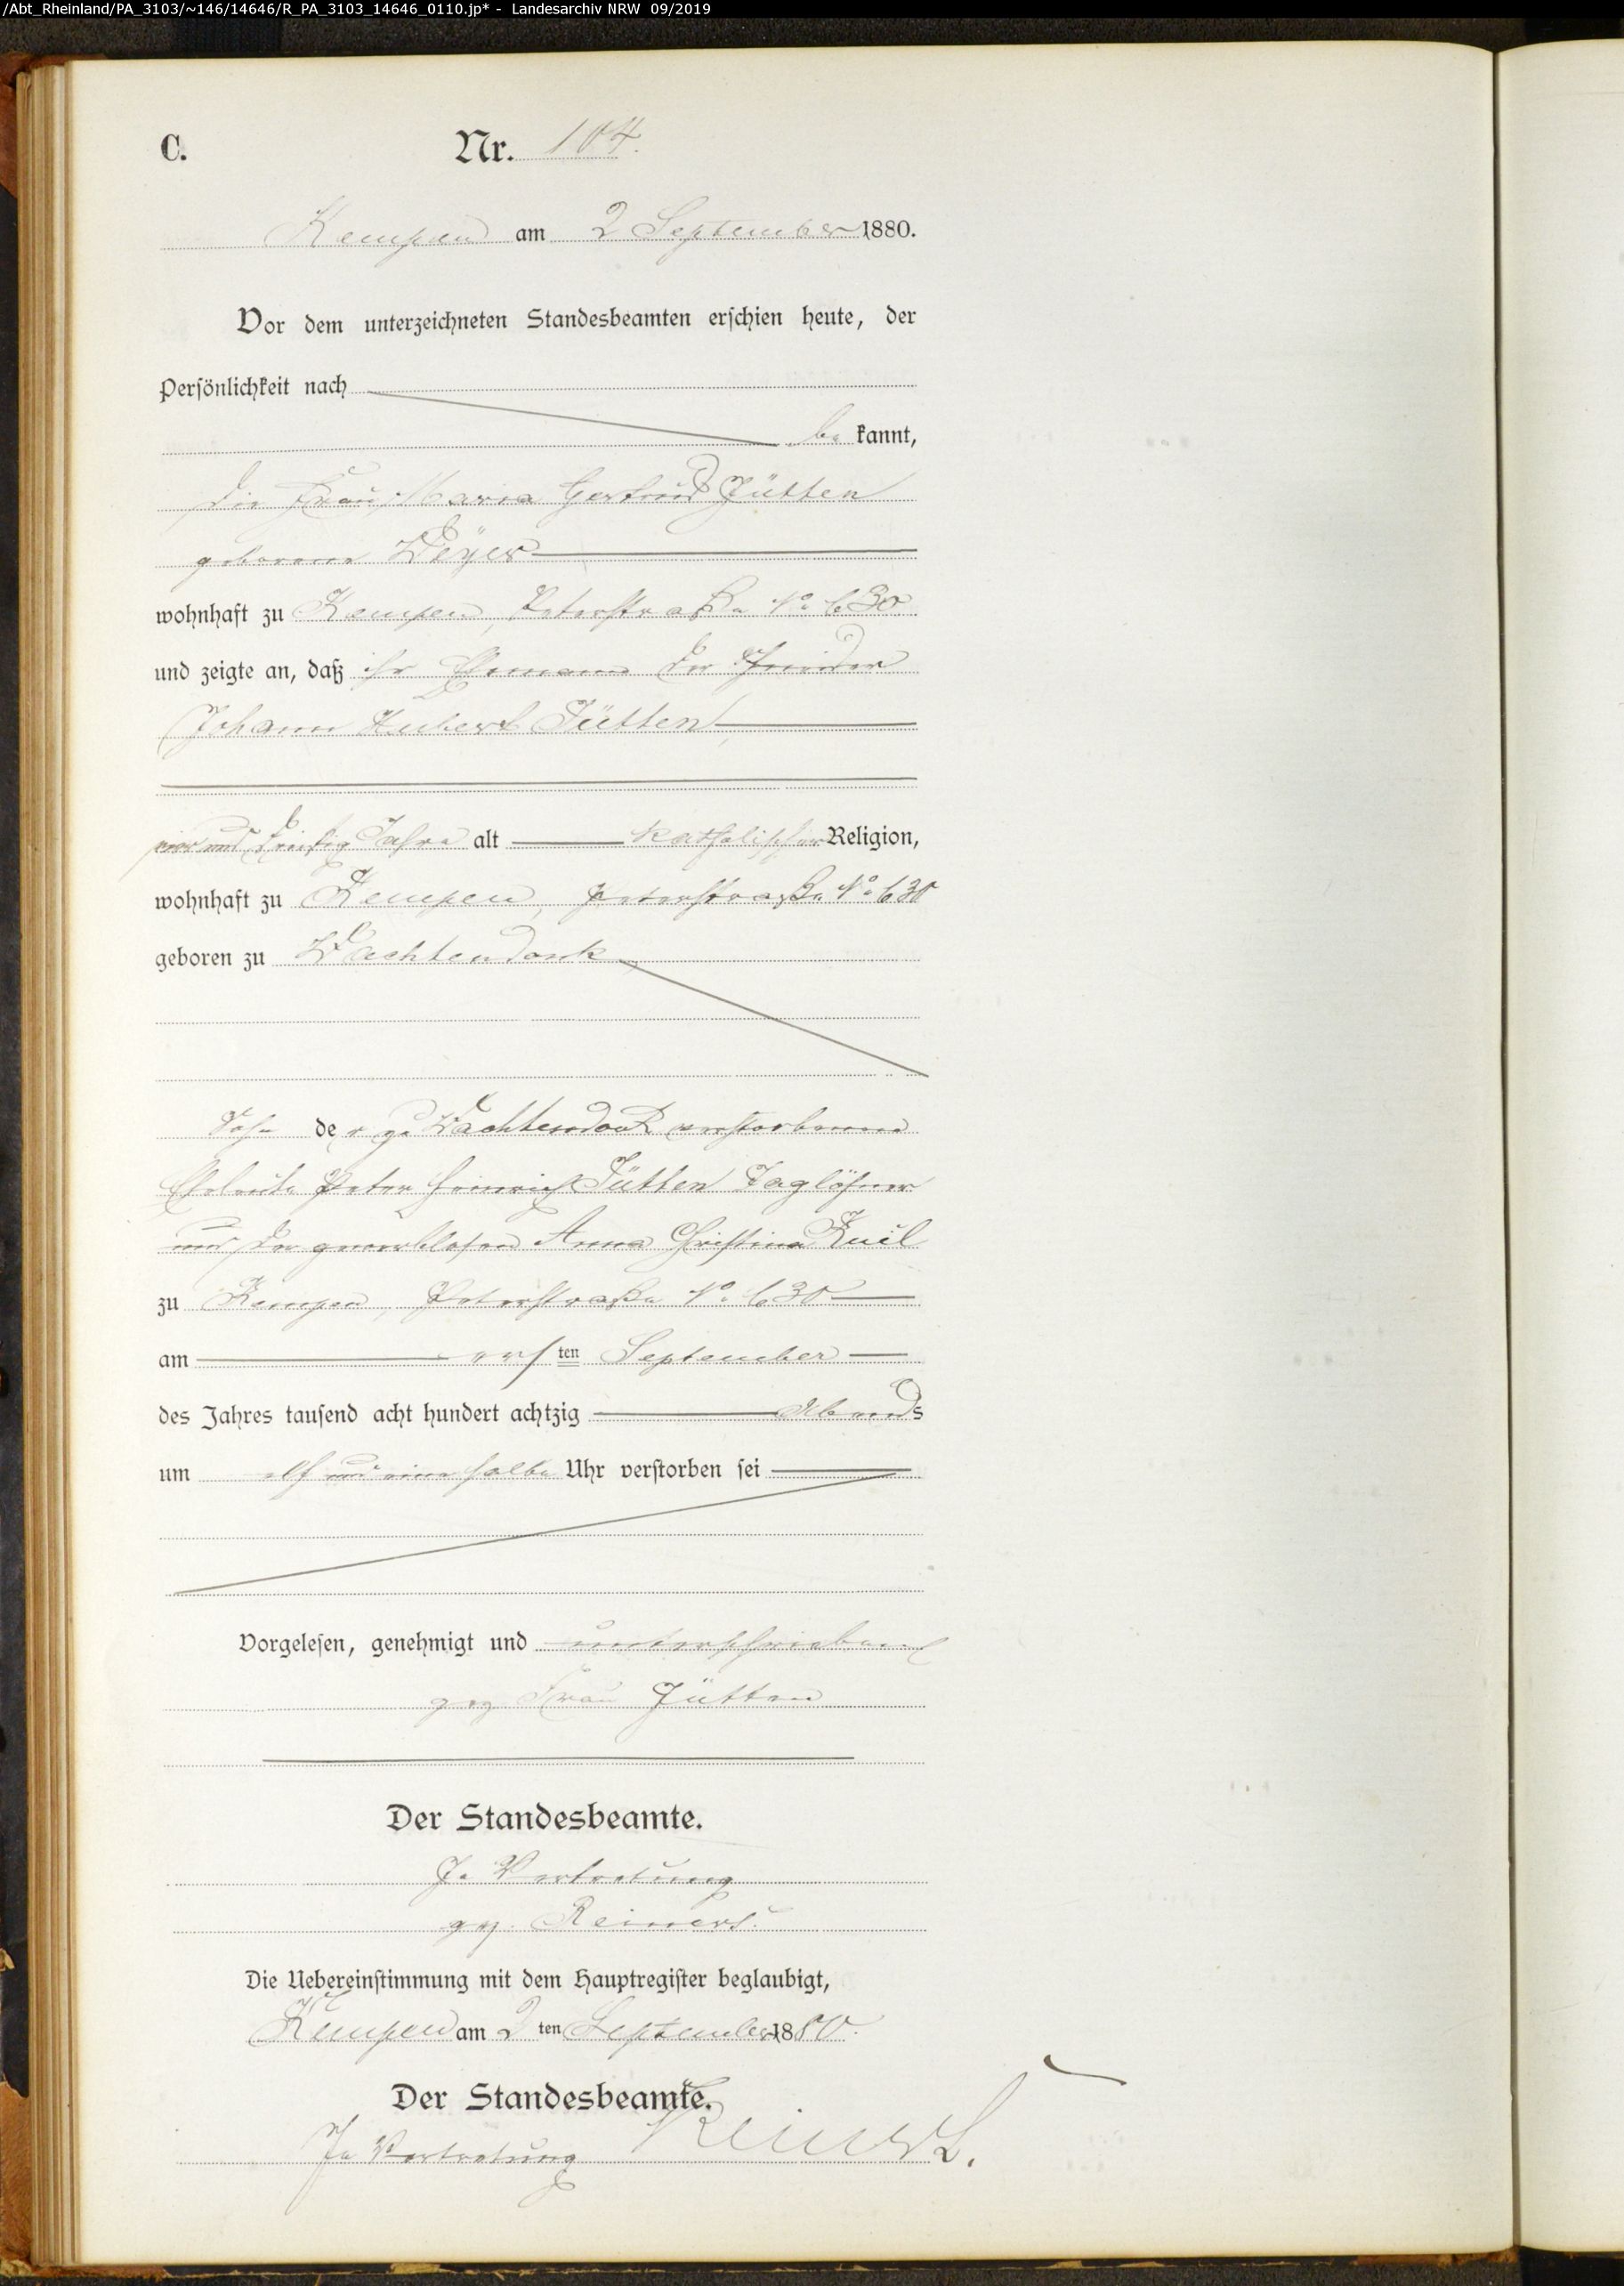 /Abt_Rheinland/PA_3103/~146/14646/R_PA_3103_14646_0110.jp* - Landesarchiv NRW 09/2019
C. Nr. 104.
Kempen am 2 September 1880.
Vor dem unterzeichneten Standesbeamten erschien heute, der
Persönlichkeit nach
be kannt,
die Frau Maria Gertrud Jütten
geborene Weyer
wohnhaft zu Kempen, Peterstraße No 630
und zeigte an, daß ihr Ehemann der
Johann Hubert Jütten,
vier und dreißig Jahre alt katholischer Religion,
wohnhaft zu Kempen, Peterstraße No 630
geboren zu Wachtendonk
Sohn der zu Wachtendonk verstorbenen
Eheleute Peter Heinrich Jütten Taglöhner
und der gewerblosen Anna Christina
zu Kempen, Peterstraße No 630
am ersten September
des Jahres tausend acht hundert achtzig Abends
um elf und eine halbe Uhr verstorben sei
Vorgelesen, genehmigt und unterschrieben
gez Frau Jütten
Der Standesbeamte.
In Vertretung
gez. Reiners.
Die Uebereinstimmung mit dem Hauptregister beglaubigt,
Kempen am 2 ten September 1880.
Der Standesbeamte.
In Vertretung Reiners.